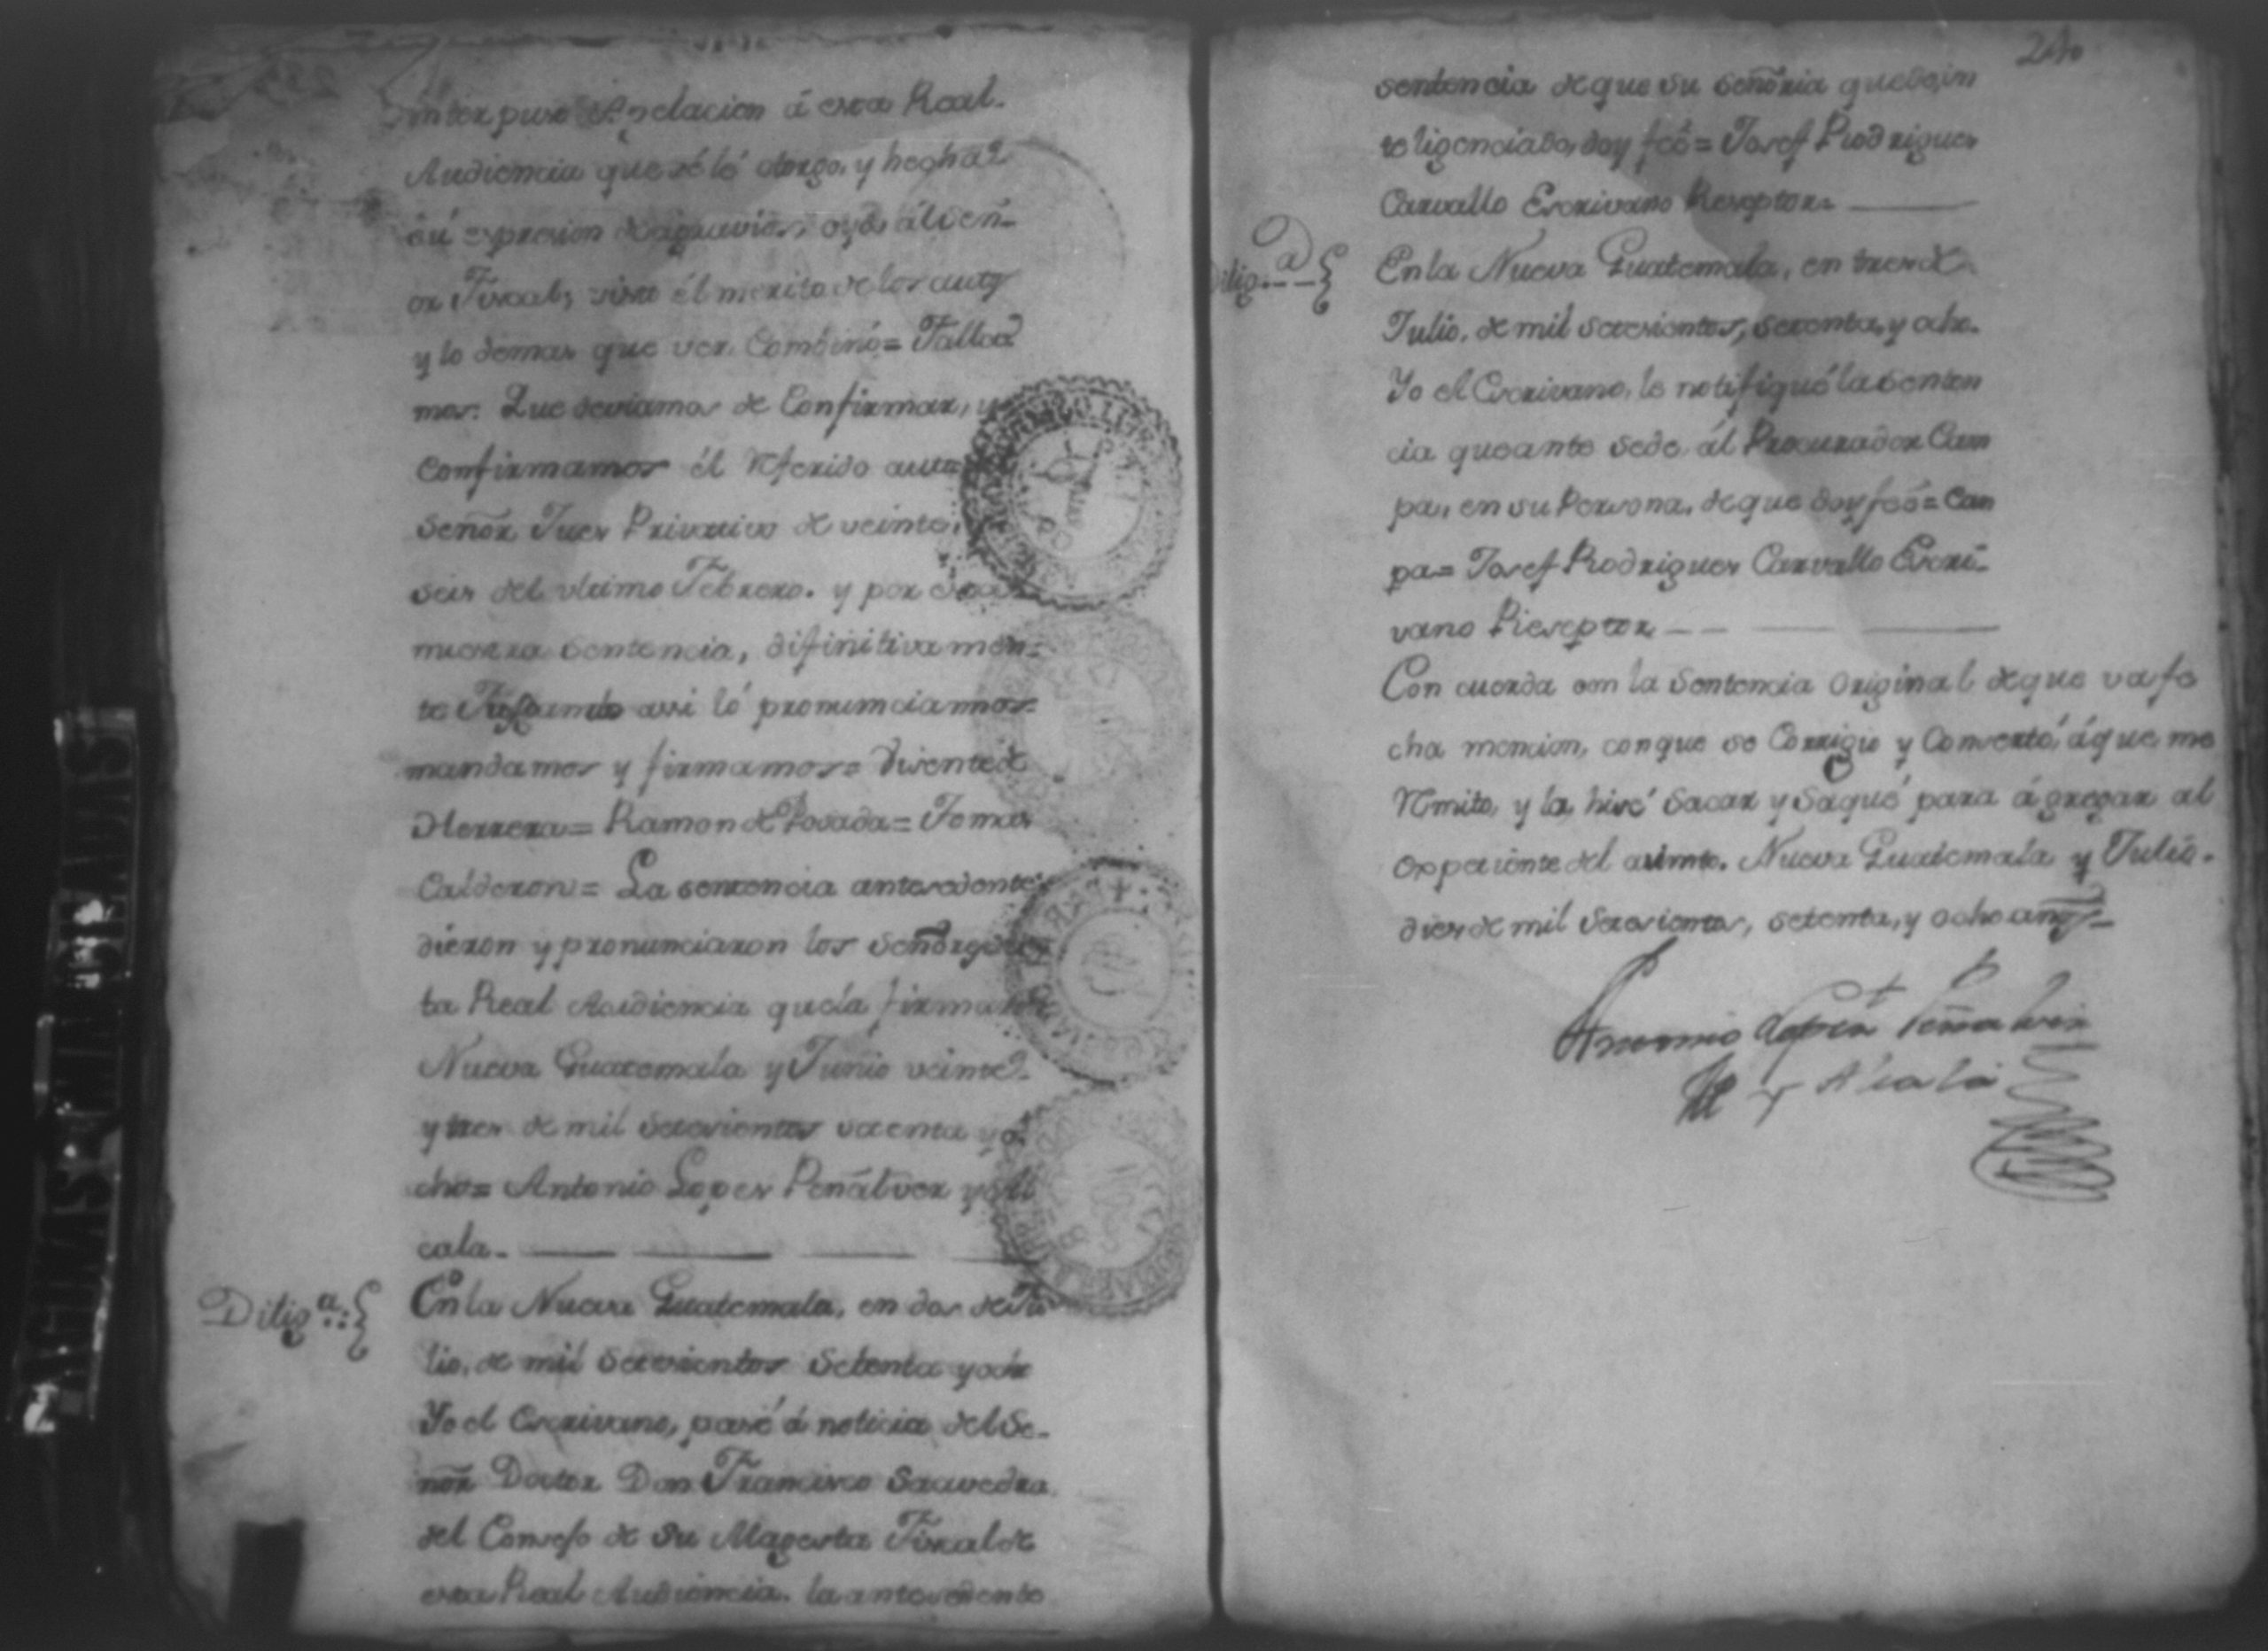 interpuso Apelacion á esta Real.
Audiencia que sé lé otorgo, y hecha
sú expresion de agravios oydo ál Señ-
or Fiscal; visto él merito de los autos
y lo demas que ver Combinó= Falla
mos: Que deviamos de Confirmar, y
Confirmamos él Referido auto
Señor Jues Privativo de veinte,
seis del ultimo Febrero. y por esta
nuestra Sentencia, difinitivamen-
te Jusgando assi ló pronunciamos
mandamos y firmamos= Visente de
Herrera= Ramon de Posada= Tomas
Calderon= La sentencia antesedente
diéron y pronunciaron los Señores
ta Real Audiencia que la firmaron
Nueva Guatemala y Junio veinte
y tres de mil Setesientos setenta y o
cho= Antonio Lopes Peñalver y Al
cala-
Dilig.a: En la Nueva Guatemala, en dos de Ju
lio, de mil Setesientos Setenta y ocho
Yo el Escrivano, pasé á noticia del Se-
ñor Doctor Don Francisco Saavedra
del Consejo de Su Magesta Fiscal de
esta Real Audiencia. la antesedente
240
sentencia de que su señoria quedo, in
teligenciado, doy feé= Josef Rodrigues
Carvallo Escrivano Reseptor
Dilig.a En la Nueva Guatemala, en tres de
Julio, de mil Setesientos, setenta, y ocho.
Yo el Escrivano, le notifiqué la senten
cia que ante sede ál Procurador Cam
pa, en su Persona, de que doy feé= Cam
pa= Josef Rodrigues Carvallo Escri-
vano Reseptor
Concuerda con la Sentencia Original de que va fe
cha mencion, con que se Corrigio y Consertó, á que me
Remito, y la, hisé Sacar y Saqué para ágregar al
Expediente del asumto. Nueva Guatemala y Julio.
dies de mil Setesientos, setenta, y ocho años
Antonio Lopez Peñalver
y Alcalá